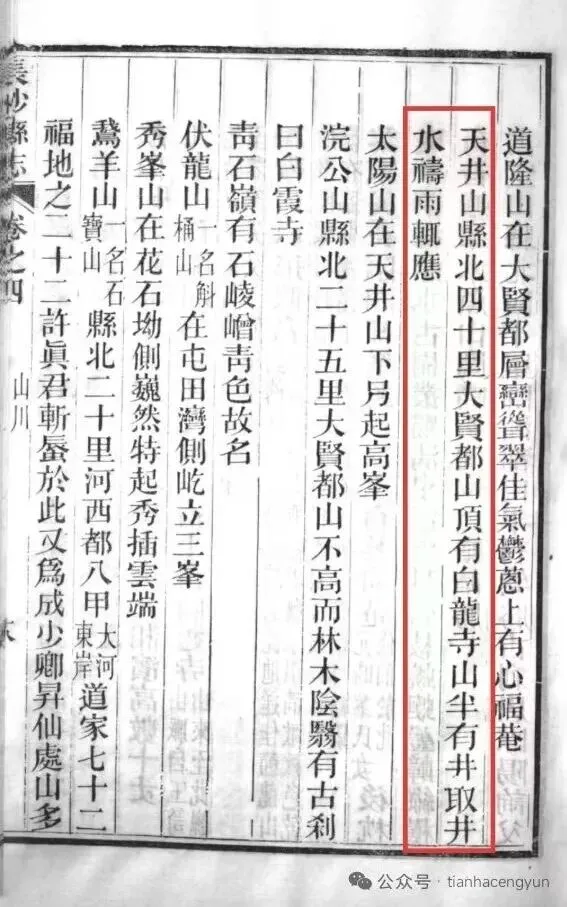 道隆山在大賢都層巒聳翠佳氣鬱蔥上有心福菴
天井山縣北四十里大賢都山頂有白龍寺山半有井取井
水禱雨輒應
太陽山在天井山下另起高峯
浣公山縣北二十五里大賢都山不高而林木陰翳有古刹
曰白霞寺
靑石嶺有石崚嶒靑色故名
伏龍山一名斛桶山在屯田灣側屹立三峯
秀峯山在花石坳側巍然特起秀插雲端
鵞羊山一名石寶山縣北二十里河西都八甲大河東岸道家七十二
福地之二十二許眞君斬蜃於此又爲成少卿昇仙處山多
長沙縣志 卷之四 山川
公众号 · tianhacengyun